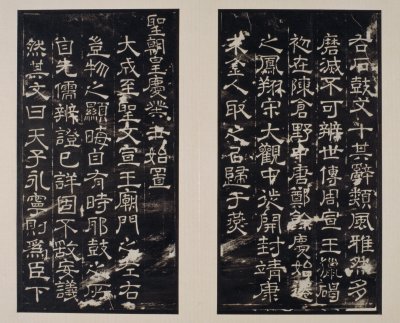 右石鼓文十其辭類風雅然多
磨滅不可辨世傳周宣王獵碣
初在陳倉野中唐鄭餘慶始遷
之鳳翔宋大觀中徙開封靖康
末金人取之㠯歸于燕
聖朝皇慶癸丑始置
大成至聖文宣王廟門之左右
豈物之顯晦自有時耶鼓之所
自先儒辨證已詳固不敢妄議
然其文曰天子永寧則爲臣下